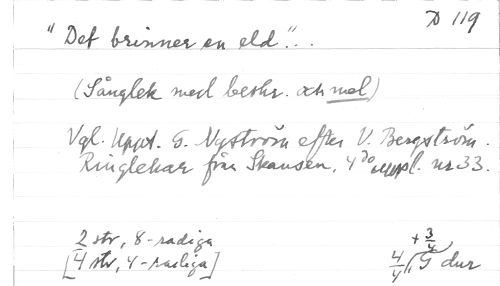 D 119
"Det brinner en eld"...
(Sånglek med beskr. och mel)
Vgl. Uppt. G. Nyström efter V. Bergström.
Ringlekar från Skansen, 4do uppl. nr 33.
2 str, 8-radiga
[4 str, 4-radiga]
+ 3/4
4/4, G dur